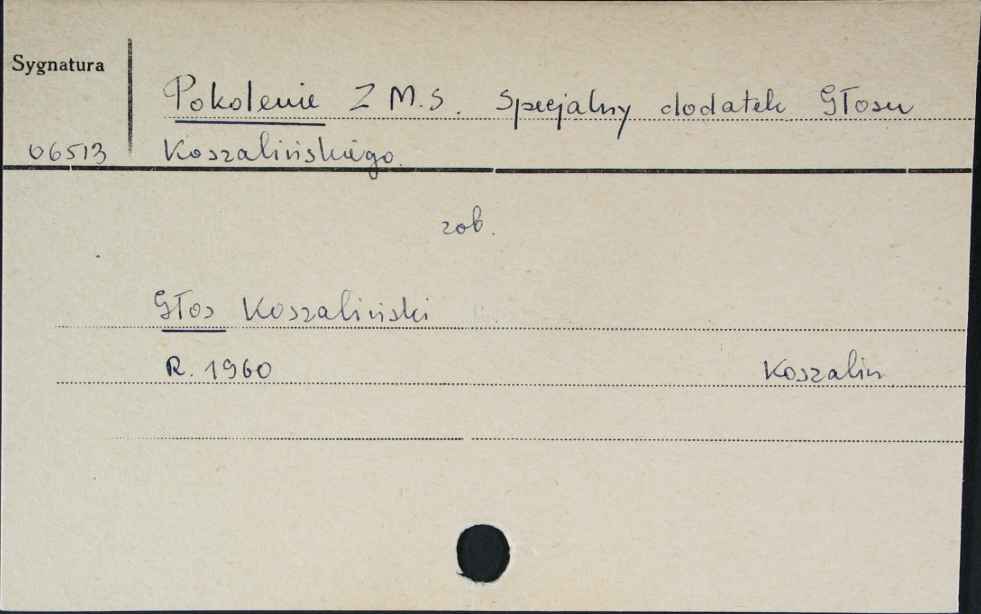 Sygnatura
Pokolenie Z M.S. Specjalny dodatek Głosu
06513 Koszalińskiego.
zob.
Głos Koszaliński
R. 1960 Koszalin